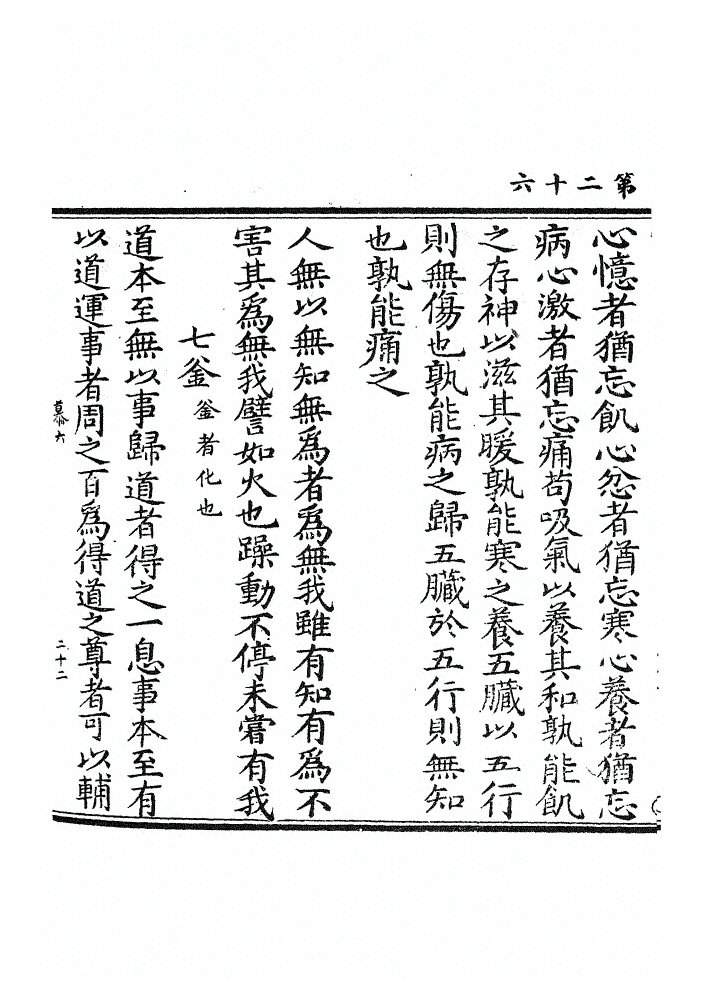 第二十六
心憶者猶忘飢心忿者猶忘寒心養者猶忘
病心激者猶忘痛苟吸氣以養其和孰能飢
之存神以滋其暖孰能寒之養五臟以五行
則無傷也孰能病之歸五臟於五行則無知
也孰能痛之
人無以無知無為者為無我雖有知有為不
害其為無我譬如火也躁動不停未嘗有我
七釜釜者化也
道本至無以事歸道者得之一息事本至有
以道運事者周之百為得道之尊者可以輔
慕六
二十二